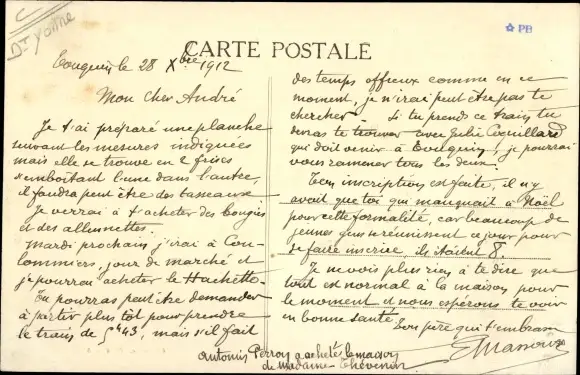 Dt Yonne
☆ PB
CARTE POSTALE
Touquin le 28 Xbre 1912
Mon Cher André
Je t'ai préparé une planche
suivant les mesures indiquées
mais elle se trouve en 2 frises
s'emboîtant l'une dans l'autre,
il faudra peut être des tasseaux
Je verrai à t'acheter des bougies
et des allumettes.
Mardi prochain, j'irai à Cou-
lommiers, jour de marché et
je pourrai acheter le Hachette.
Tu pourras peut être demander
à partir plus tôt pour prendre
le train de 5h43, mais s'il fait
des temps affreux comme en ce
moment, je n'irai peut être pas te
chercher. Si tu prends ce train tu
devras te trouver avec Julie Coquillard
qui doit venir à Touquin, je pourrai
vous ramener tous les deux.
Ton inscription est faite, il n'y
avait que toi qui manquait à Noël
pour cette formalité, car beaucoup de
jeunes gens se réunissent ce jour pour
se faire inscrire, ils étaient 8.
Je ne vois plus rien à te dire que
tout est normal à la maison pour
le moment et nous espérons te voir
en bonne santé.
Ton père qui t'embrasse
Antonin Perron a acheté la maison
de madame Thévenin